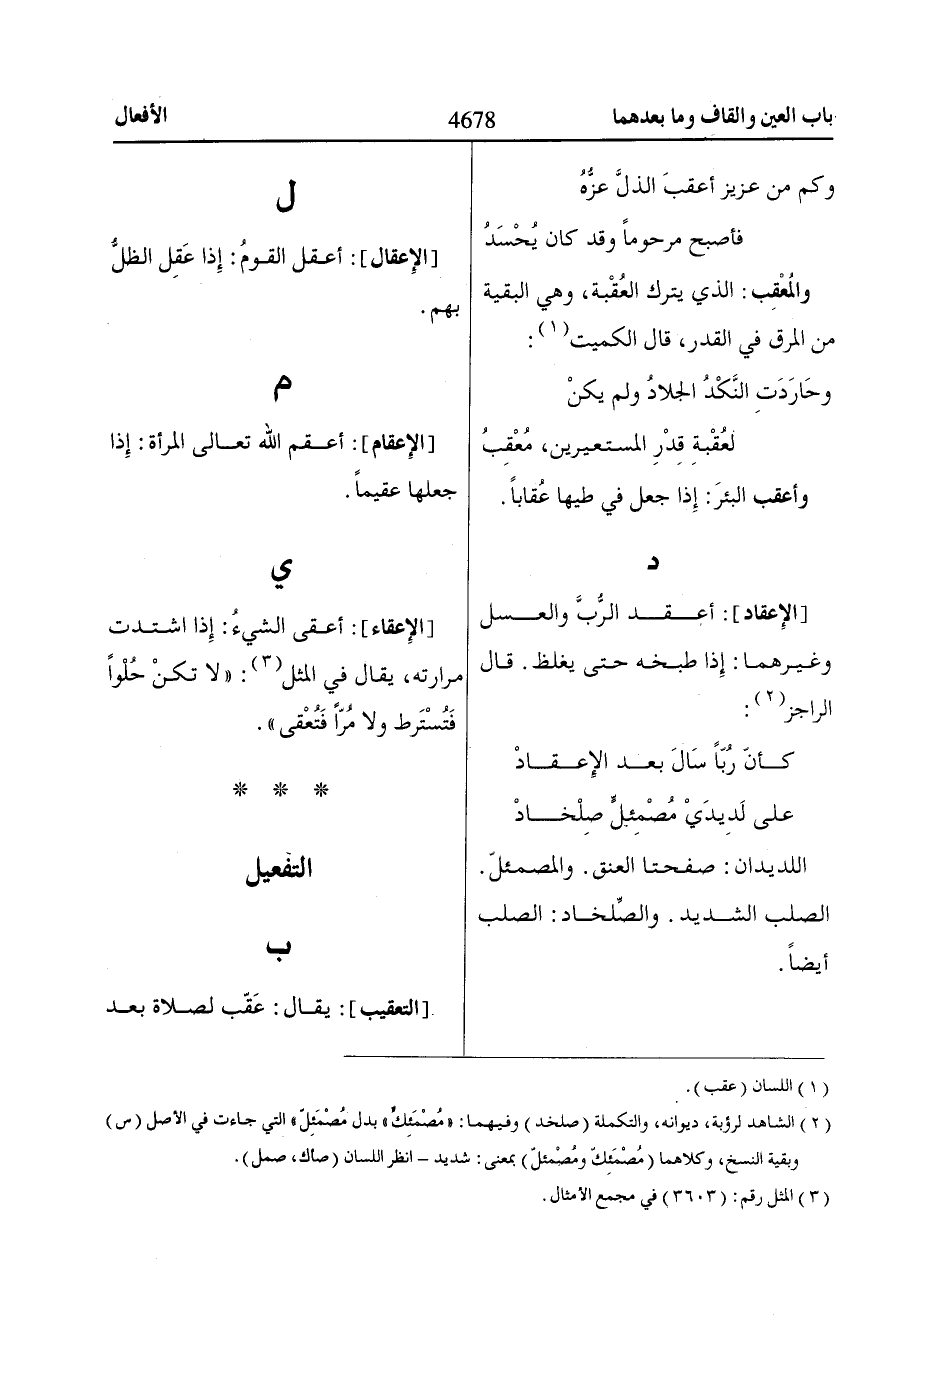 باب العين والقاف وما بعدهما
4678
الأفعال
وكم من عزيز أعقبَ الذلَّ عزُّهُ
فأصبح مرحوماً وقد كان يُحْسَدُ
والمُعْقِب: الذي يترك العُقْبة، وهي البقية
من المرق في القدر، قال الكميت(١):
وحَارَدَتِ النَّكْدُ الجلادُ ولم يكنْ
لعُقْبة قِدْرِ المستعيرين، مُعْقِبُ
وأعقب البئرَ: إذا جعل في طيها عُقاباً.
د
[الإعقاد]: أعـقـد الرُّبَّ والعسل
وغيرهما: إذا طبخه حتى يغلظ. قال
الراجز(٢):
كـأنّ رُبّاً سَالَ بعـد الإعـقـادْ
على لَدِيدَيْ مُصْمَئِلٍّ صِلْخَـادْ
اللديدان: صفحتا العنق. والمصمئلّ.
الصلب الشديد. والصِّلخاد: الصلب
أيضاً.
ل
[الإعقال]: أعقل القومُ: إذا عَقِل الظلُّ
بهم.
م
[الإعقام]: أعقم الله تعالى المرأة: إذا
جعلها عقيماً.
ي
[الإعقاء]: أعقى الشيءُ: إذا اشتدت
مرارته، يقال في المثل(٣): «لا تكنْ حُلْواً
فَتُسْتَرط ولا مُرّاً فَتُعْقى».
* * *
التفعيل
ب
[التعقيب]: يقال: عَقّب لصلاة بعد
(١) اللسان (عقب).
(٢) الشاهد لرؤبة، ديوانه، والتكملة (صلخد) وفيهما: «مُصْمَئِكٌ» بدل مُصْمَئِلّ» التي جاءت في الأصل (س)
وبقية النسخ، وكلاهما (مُصْمَئِكّ ومُصْمئلّ) بمعنى: شديد – انظر اللسان (صاك، صمل).
(٣) المثل رقم: (٣٦٠٣) في مجمع الأمثال.